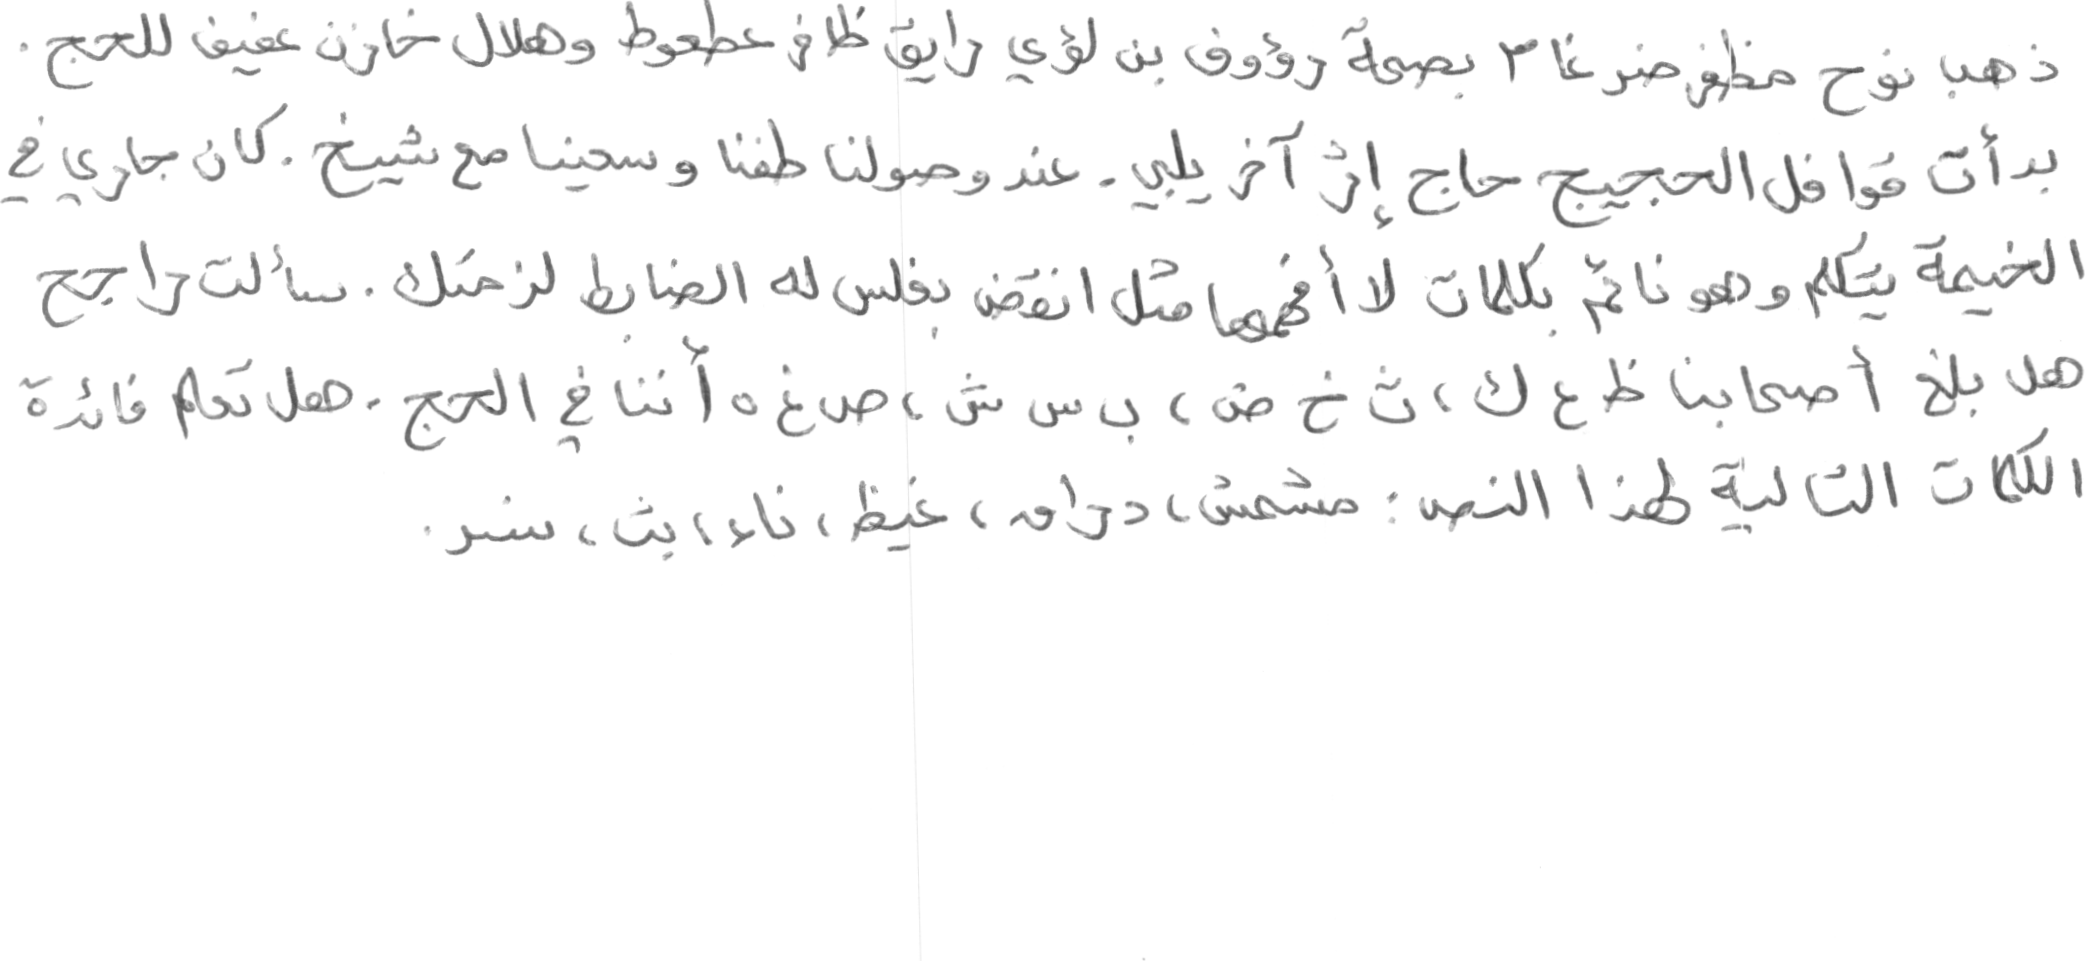 ذهب نوح مظفر ضرغام بصحبة رؤوف بن لؤي رايق ظافر عطعوط وهلال خازن عفيف للحج .
بدأت قوافل الحجيج حاج إثر آخر يلبي . عند وصولنا طفنا وسعينا مع شيخ . كان جاري في
الخيمة يتكلم وهو نائم بكلمات لا أفهمها مثل انقض بفلس له الضابط لزمتك . سألت راجح
هل بلغ أصحابنا ظ ع ك ، ث خ ض ، ب س ش ، ص غ ه أننا في الحج . هل تعلم فائدة
الكلمات التالية لهذا النص : مشمش ، دراق ، غيظ ، ناء ، بث ، سند .